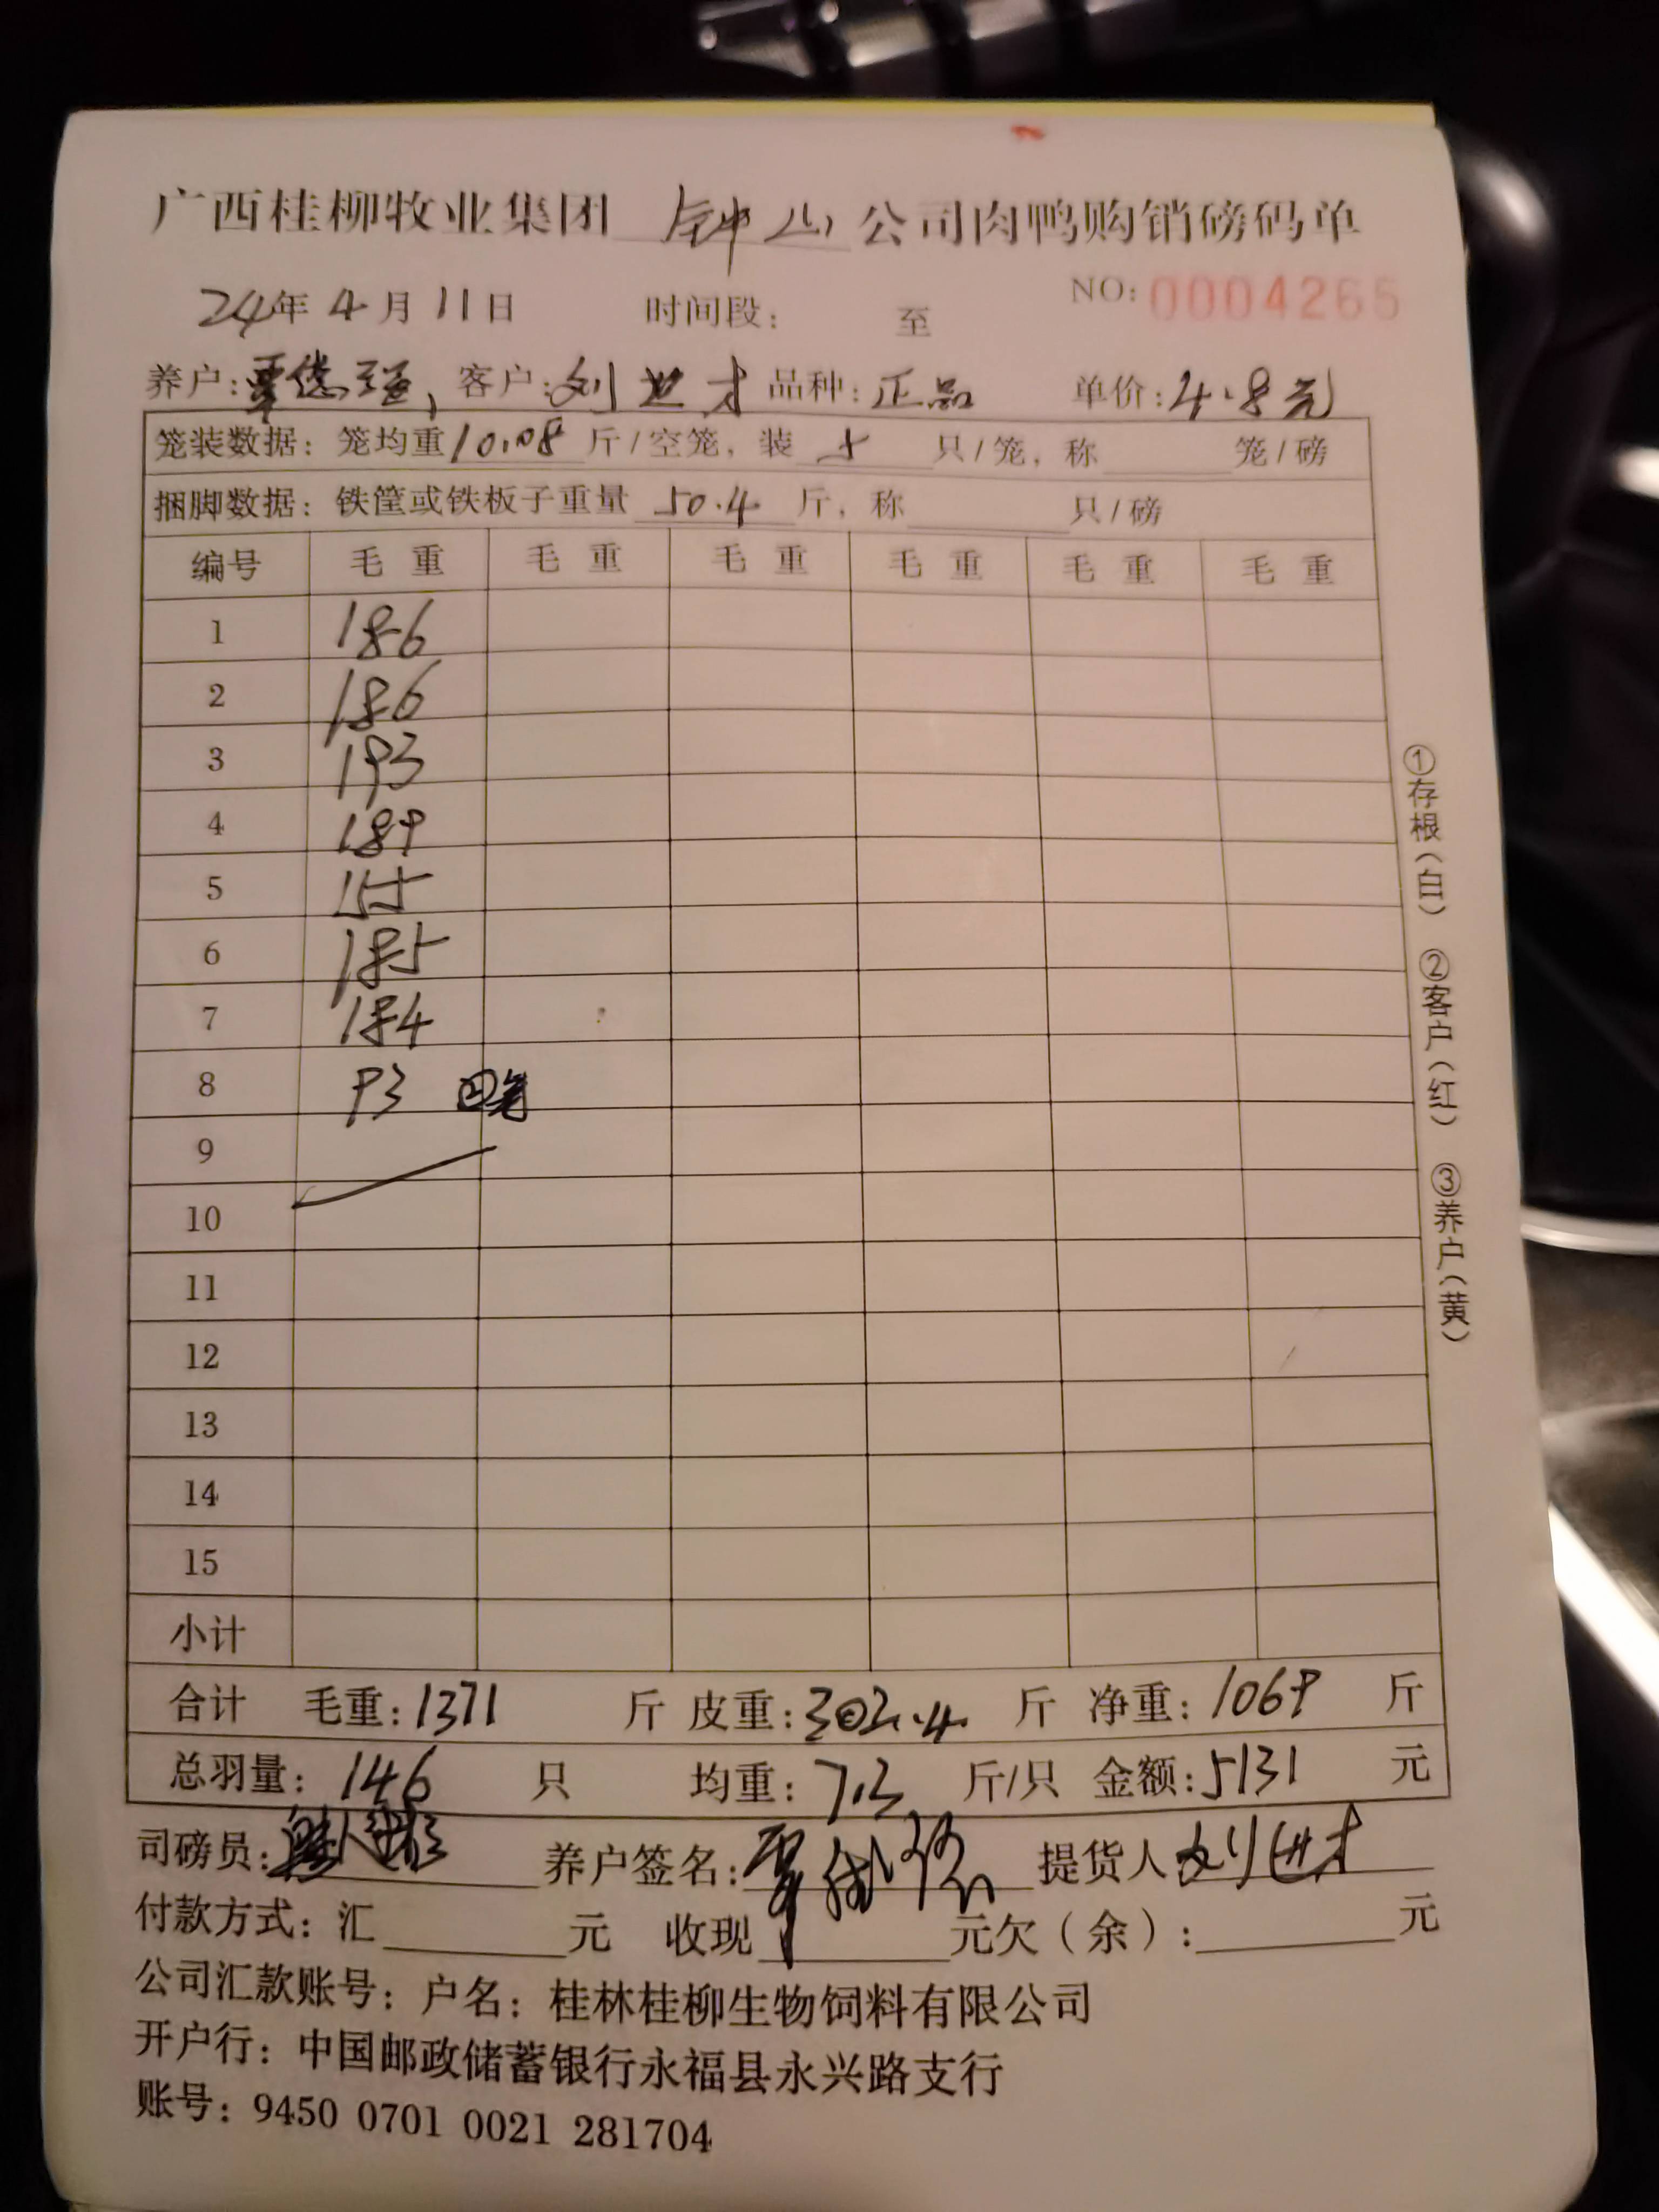 广西桂柳牧业集团 钟山 公司肉鸭购销磅码单
24年 4月 11日 时间段： 至 NO：0004265
养户：覃德强， 客户：刘世才 品种：正品 单价：4.8元
笼装数据：笼均重10.08斤/空笼，装 只/笼，称 笼/磅
捆脚数据：铁筐或铁板子重量 50.4 斤，称 只/磅
编号 毛重 毛重 毛重 毛重 毛重 毛重
1 186
2 186
3 193
4 189
5 155
6 185
7 184
8 93
9
10
11
12
13
14
15
小计
合计 毛重：1371 斤 皮重：302.4 斤 净重：1069 斤
总羽量：146 只 均重：7.3 斤/只 金额：5131 元
司磅员： 养户签名：覃 提货人 刘世才
付款方式：汇 元 收现 元欠（余）： 元
公司汇款账号：户名：桂林桂柳生物饲料有限公司
开户行：中国邮政储蓄银行永福县永兴路支行
账号：9450 0701 0021 281704
①存根（白） ②客户（红） ③养户（黄）